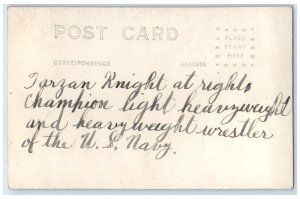 POST CARD
PLACE
STAMP
HERE
CORRESPONDENCE
ADDRESS
Tarzan Knight at right
Champion light heavyweight
and heavyweight wrestler
of the U. S. Navy.